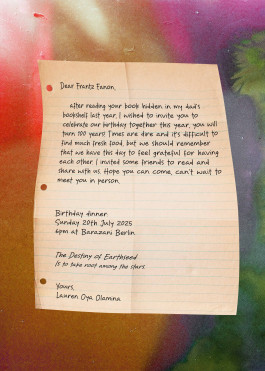 Dear Frantz Fanon,
after reading your book hidden in my dad's
bookshelf last year, I wished to invite you to
celebrate our birthday together this year, you will
turn 100 years! Times are dire and it's difficult to
find much fresh food, but we should remember
that we have this day to feel grateful for having
each other. I invited some friends to read and
share with us. Hope you can come, can't wait to
meet you in person.
Birthday dinner
Sunday 20th July 2025
6pm at Barazani Berlin
The Destiny of Earthseed
is to take root among the stars.
Yours,
Lauren Oya Olamina